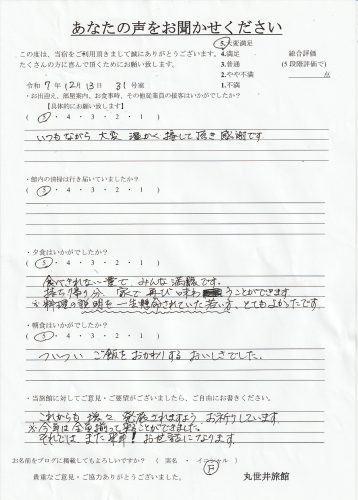 あなたの声をお聞かせください
この度は、当宿をご利用頂きまして誠にありがとうございます。
たくさんの方に喜んで頂くためにお願い致します。
5.大変満足
4.満足
3.普通
2.やや不満
1.不満
総合評価
(5段階評価で)
点
令和 7 年 12 月 13 日 31 号室
・お出迎え、部屋案内、お食事時、その他従業員の接客はいかがでしたか？
【具体的にお願い致します】
( 5 ・ 4 ・ 3 ・ 2 ・ 1 )
いつもながら 大変 温かく 接して頂き 感謝です
・館内の清掃は行き届いていましたか？
( 5 ・ 4 ・ 3 ・ 2 ・ 1 )
・夕食はいかがでしたか？
( 5 ・ 4 ・ 3 ・ 2 ・ 1 )
食べきれない量で みんな満腹です。
持ち帰り分 家で 再び味わうことができます
※料理の説明を一生懸命されていた若い方、とてもよかったです
・朝食はいかがでしたか？
( 5 ・ 4 ・ 3 ・ 2 ・ 1 )
ついつい ご飯をおかわりする おいしさでした。
・当旅館に対してご意見・ご要望がございましたら、ご自由にお書きください。
これからも 益々 発展されますよう お祈りしています
※今年は全員揃って来ることができました。
それでは また来年！ お世話になります
お名前をブログに掲載してもよろしいですか？ ( 実名 ・ イニシャル )
F
貴重なご意見・ご協力ありがとうございました。
丸世井旅館